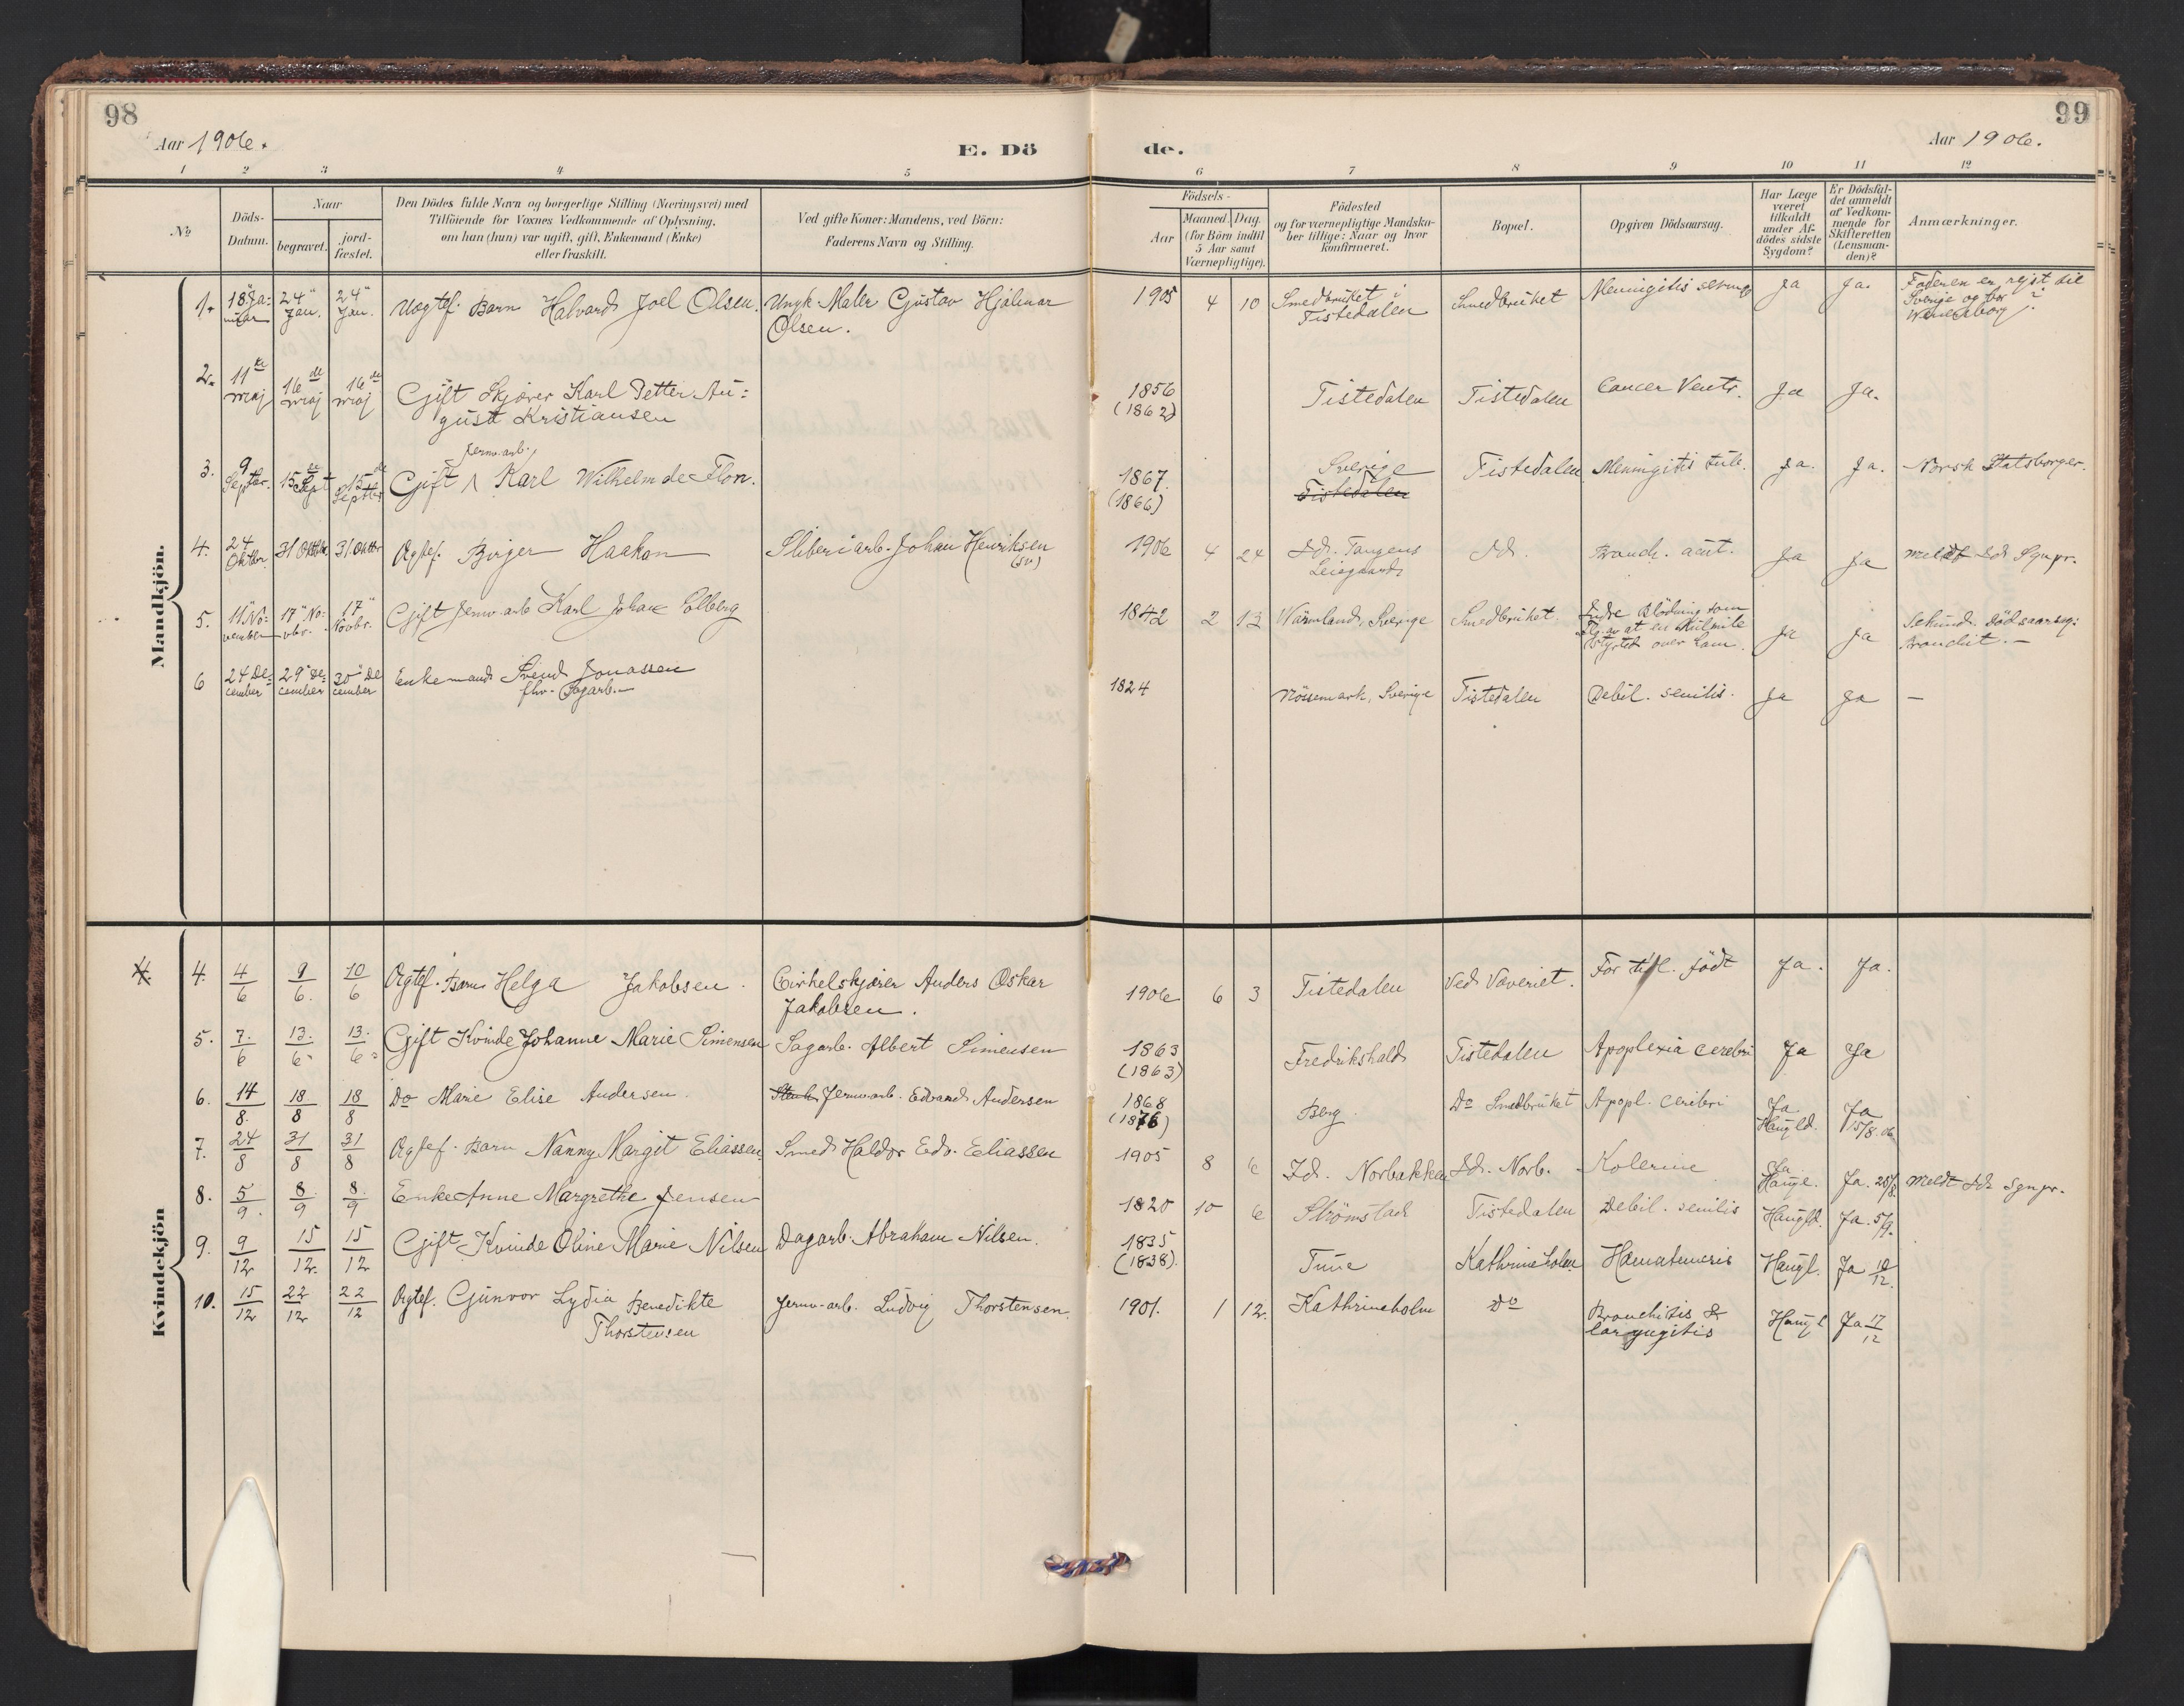 98
99
Aar 1906.
E. Dö
de.
Aar 1906.
1 2 3 4 5 6 7 8 9 10 11 12
No
Döds-
Datum.
Naar
begravet.
jord-
fæstet.
Den Dödes fulde Navn og borgerlige Stilling (Næringsvei) med
Tilföiende for Voxnes Vedkommende af Oplysning,
om han (hun) var ugift, gift, Enkemand (Enke)
eller fraskilt.
Ved gifte Koner: Mandens, ved Börn:
Faderens Navn og Stilling.
Födsels-
Aar
Maaned. Dag.
(for Börn indtil
5 Aar samt
Værnepligtige).
Födested
og for værnepligtige Mandska-
ber tillige: Naar og hvor
konfirmeret.
Bopæl.
Opgiven Dödsaarsag.
Har Læge
været
tilkaldt
under Af-
dödes sidste
Sygdom?
Er Dödsfal-
det anmeldt
af Vedkom-
mende for
Skifteretten
(Lensman-
den)?
Anmærkninger.
Mandkjön.
1. 18" Ja-
nuar 24" Jan. 24" Jan. Uegtef. Barn Halvard Joel Olsen. Ungk. Maler Gustav Hjalmar
Olsen. 1905 4 10 Smedbruket i
Tistedalen Smedbruket Meningitis Ja Ja. Faderen er rejst til
Sverige og bor i
2. 11te maj 16de maj 16de maj Gift Skjærer Karl Petter Au-
gust Kristiansen 1856
(1862) Tistedalen Tistedalen Cancer Ventr. Ja Ja.
3. 9 Septbr. 15de Sept 15de Septbr Gift Jernv.arb. Karl Wilhelm de Flon. 1867.
(1866) Sverige
Tistedalen Tistedalen Meningitis tub. Ja. Ja. Norsk Statsborger.
4. 24 Oktbr. 31 Oktbr. 31 Oktbr Ægtef. Birger Haakon Sliberiarb. Johan Henriksen
(sv) 1906 4 24 Id. Tangens
Leiegaard Id. Bronch. acut. Ja Ja meldt Id Sgnpr.
5. 11" No-
vember 17" No-
vbr. 17" Novbr. Gift Jernv.arb Karl Johan Solberg 1842 2 13 Wärmland, Sverige Smedbruket. Indre Blödning som
Flg. av at en Kulmile
styrted over ham. Ja Ja Sekund. Dödsaarsag:
Bronchit. -
6 24 De-
cember 29" De-
cember 30" De
cember Enkemand Svend Jonassen
fhv. Sagarb. 1824 Nössemark, Sverige Tistedalen Debil. senilis. Ja Ja -
Kvindekjön
4. 4. 4/6 9/6. 10/6 Ægtef. Barn Helga Jakobsen. Cirkelskjærer Anders Oskar
Jakobsen. 1906 6 3 Tistedalen Ved Væveriet. For tidl. födt Ja. Ja.
5. 7./6 13./6 13./6 Gift Kvinde Johanne Marie Simensen Sagarb. Albert Simensen 1863
(1863) Fredrikshald Tistedalen Apoplexia cerebri Ja Ja
6. 14/8. 18/8 18/8 Do Marie Elise Andersen. Jernv.arb. Edvard Andersen 1868
(1876) Berg. Do Smedbruket Apopl. ceribri Ja
Haugld. Ja
15/8. 06
7. 24/8 31/8 31/8 Ægtef. Barn Nanny Margit Eliassen. Smed Haldor Edv. Eliassen 1905 8 6 Id. Norbakken Id. Norb. Kolerine Ja
Haugl. Ja. 28/8. meldt Id. Sgnpr.
8. 5/9. 8./9 8./9 Enke Anne Margrethe Jensen 1820 10 6 Strömstad Tistedalen Debil. senilis Haugld. Ja. 5/9.
9. 9/12 15/12. 15/12 Gift Kvinde Oline Marie Nilsen Dagarb. Abraham Nilsen. 1835
(1838). Tune Kathrineholm Hæmatemesis Haugl. Ja 10/12.
10. 15/12 22/12 22/12 Ægtef. Gunvor Lydia Benedikte
Thorstensen Jernv-arb. Ludvig Thorstensen. 1901. 1 12. Kathrineholm Do Bronchitis &
laryngitis Haugl Ja 17/12